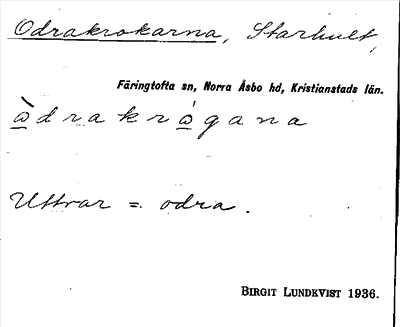 Odrakrokarna, Starhult,
Färingtofta sn, Norra Åsbo hd, Kristianstads län.
ὼdrakrώgana
Uttrar = odra.
BIRGIT LUNDKVIST 1936.